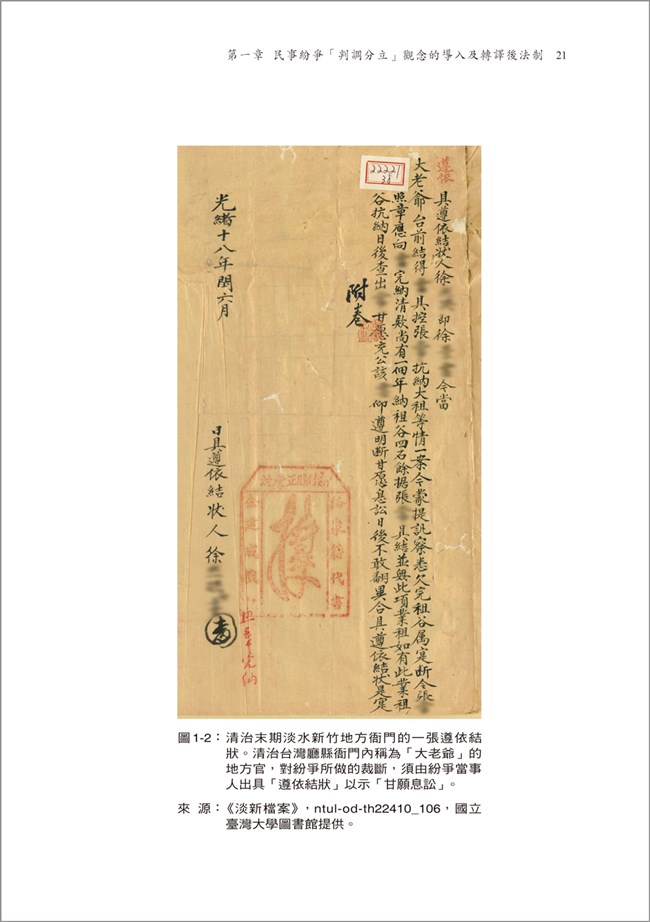 第一章 民事紛爭「判調分立」觀念的導入及轉譯後法制 21
遵依
具遵依結狀人徐 即徐 今當
大老爺台前結得 具控張 抗納大租等情一案今蒙提訊察悉欠完租谷属寔断令張
照章應向 完納清款尚有一佃年納租谷四石餘据張 具結並無此項業租如有此業租
谷抗納日後查出 甘愿充公該 仰遵明断甘愿息訟日後不敢翻異合具遵依結狀是寔
附卷
22221
38
光緒十八年閏六月
日具遵依結狀人徐
代書
圖1-2：清治末期淡水新竹地方衙門的一張遵依結
狀。清治台灣廳縣衙門內稱為「大老爺」的
地方官，對紛爭所做的裁斷，須由紛爭當事
人出具「遵依結狀」以示「甘願息訟」。
來 源：《淡新檔案》，ntul-od-th22410_106，國立
臺灣大學圖書館提供。